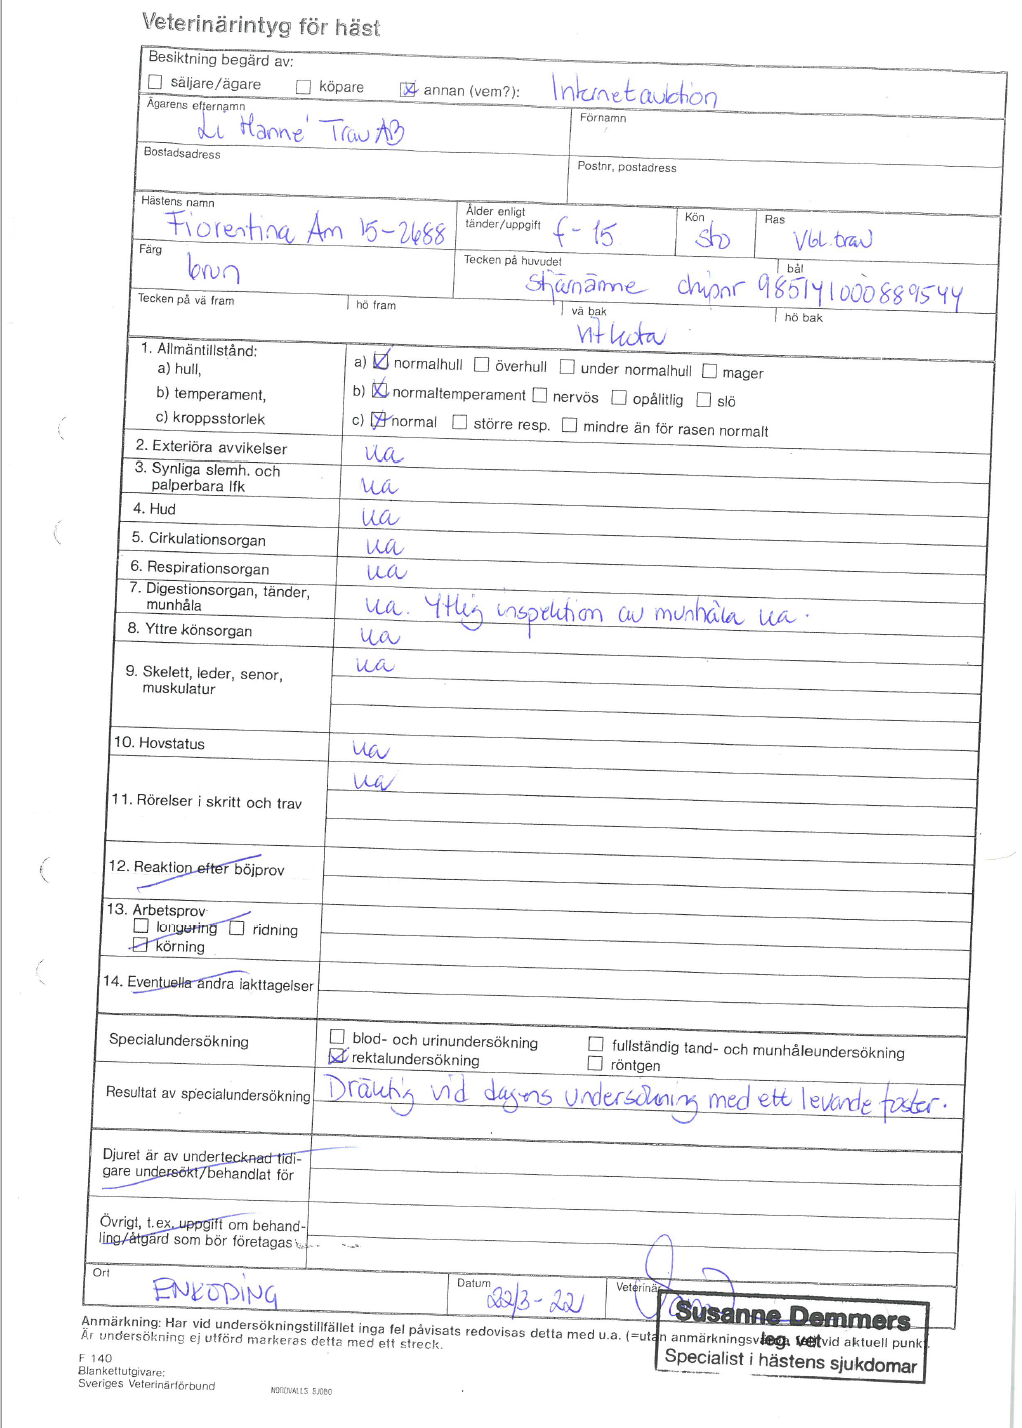 Veterinärintyg för häst
Besiktning begärd av:
säljare/ägare köpare annan (vem?): Internetauktion
Ägarens efternamn Förnamn
Li Hanné Trav AB
Bostadsadress Postnr, postadress
Hästens namn Ålder enligt tänder/uppgift Kön Ras
Fiorentina Am 15-2688 f-15 sto Vbl. trav
Färg Tecken på huvudet bål
brun Stjärnämne chipnr 985141000889544
Tecken på vä fram hö fram vä bak hö bak
Vit kota
1. Allmäntillstånd:
a) hull, a) normalhull överhull under normalhull mager
b) temperament, b) normaltemperament nervös opålitlig slö
c) kroppsstorlek c) normal större resp. mindre än för rasen normalt
2. Exteriöra avvikelser ua
3. Synliga slemh. och
palperbara lfk ua
4. Hud ua
5. Cirkulationsorgan ua
6. Respirationsorgan ua
7. Digestionsorgan, tänder,
munhåla ua. Ytlig inspektion av munhåla ua.
8. Yttre könsorgan ua
9. Skelett, leder, senor, ua
muskulatur
10. Hovstatus ua
11. Rörelser i skritt och trav ua
12. Reaktion efter böjprov
13. Arbetsprov
longering ridning
körning
14. Eventuella andra iakttagelser
Specialundersökning blod- och urinundersökning fullständig tand- och munhåleundersökning
rektalundersökning röntgen
Resultat av specialundersökning Dräktig vid dagens undersökning med ett levande foster.
Djuret är av undertecknad tidi-
gare undersökt/behandlat för
Övrigt, t.ex. uppgift om behand-
ling/åtgärd som bör företagas
Ort Datum Veterinär
ENKÖPING 22/3-22
Susanne Demmers
leg. vet
Specialist i hästens sjukdomar
Anmärkning: Har vid undersökningstillfället inga fel påvisats redovisas detta med u.a. (=utan anmärkningsv vid aktuell punkt.
Är undersökning ej utförd markeras detta med ett streck.
F 140
Blankettutgivare:
Sveriges Veterinärförbund NORDVALLS